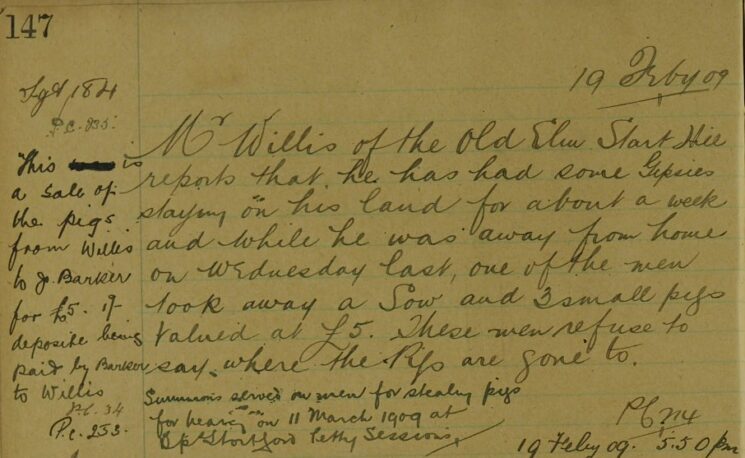 147
19 Feby 09
Sgt 184
P.C. 235.
Mr Willis of the Old Elm Start Hill
reports that he has had some Gipsies
staying on his land for about a week
and while he was away from home
on Wednesday last, one of the men
took away a Sow and 3 small pigs
Valued at £5. These men refuse to
say where the Pigs are gone to.
This is
a Sale of
the pigs
from Willis
to J. Barker
for £5.
deposite being
paid by Barker
to Willis
P.C. 34
P.C. 253.
Summons served on men for stealing pigs
for hearing on 11 March 1909 at
Bp Stortford Petty Sessions
19 Feby 09. 5.50 pm